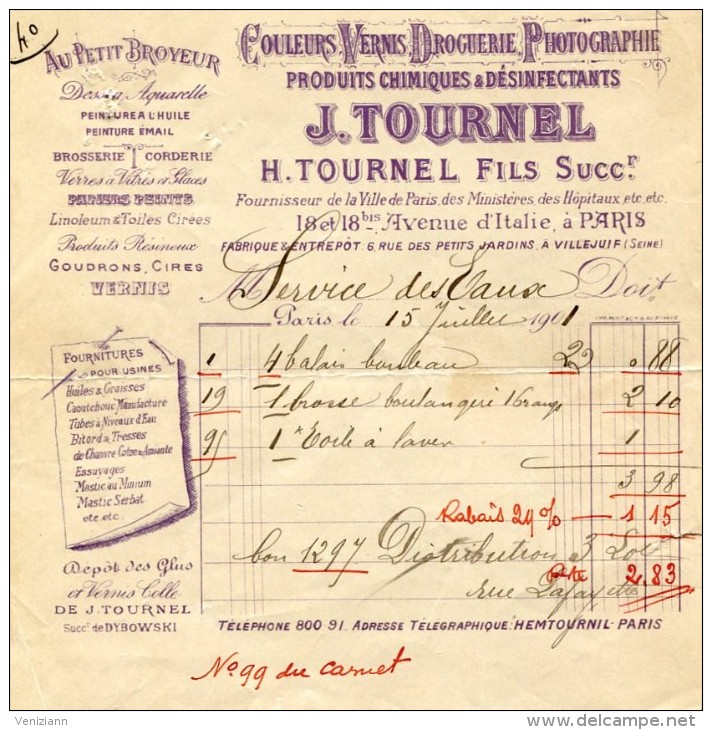 40
AU PETIT BROYEUR
Dessin, Aquarelle
PEINTURE A L'HUILE
PEINTURE ÉMAIL
BROSSERIE CORDERIE
Verres à Vitres et Glaces
PAPIERS PEINTS
Linoleum & Toiles Cirées
Produits Résineux
GOUDRONS, CIRES
VERNIS
COULEURS, VERNIS, DROGUERIE, PHOTOGRAPHIE
PRODUITS CHIMIQUES & DÉSINFECTANTS
J. TOURNEL
H. TOURNEL FILS SUCCr.
Fournisseur de la Ville de Paris, des Ministères, des Hôpitaux, etc, etc.
18 et 18bis, Avenue d'Italie, à PARIS
FABRIQUE & ENTREPÔT, 6, RUE DES PETITS JARDINS, À VILLEJUIF (SEINE)
M Service des Eaux Doit
Paris le 15 Juillet 1901
1 4 balais bouleau 22 0 88
19 1 brosse boulangère 16 rangs 2 10
95 1 Toile à laver 1
3 98
Rabais 29 % 1 15
bon 1297 Distribution 3
Reste 2.83
rue Lafayette
FOURNITURES
POUR USINES
Huiles & Graisses
Caoutchouc Manufacturé
Tubes à Niveaux d'Eau
Bitord & Tresses
de Chanvre Coton & Amiante
Essuyages
Mastic au Minium
Mastic Serbat
etc. etc.
Dépôt des Glus
et Vernis Colle
DE J. TOURNEL
Succr. de DYBOWSKI
TÉLÉPHONE 800 91. ADRESSE TÉLÉGRAPHIQUE: HEMTOURNIL-PARIS
No 99 du carnet
Veniziann
delcampe.net